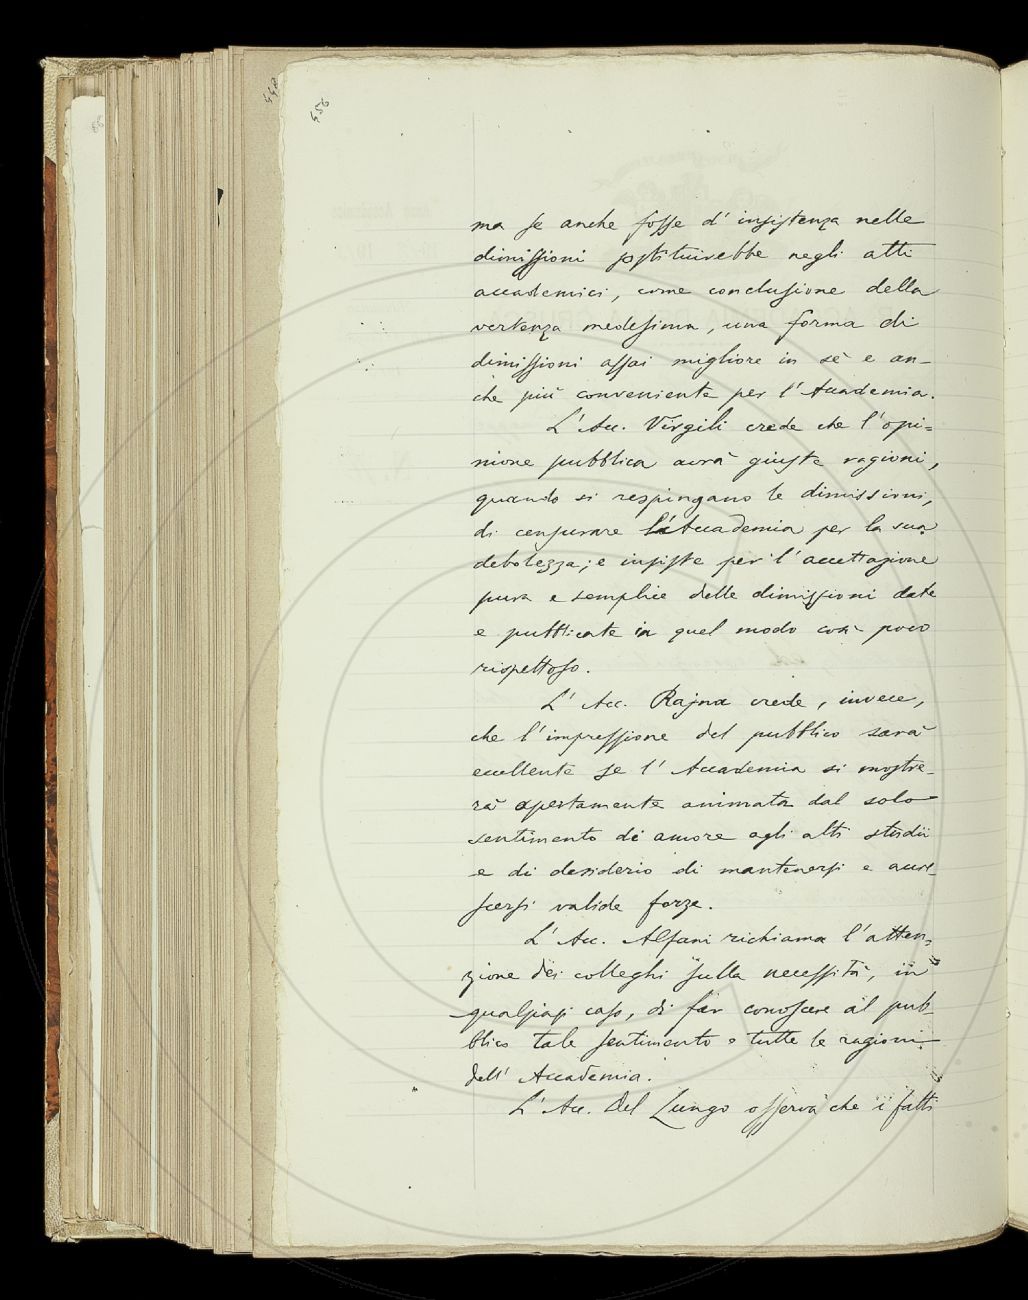 448
456
ma se anche fosse d'insistenza nelle
dimissioni sostituirebbe negli atti
accademici, come conclusione della
vertenza medesima, una forma di
dimissioni assai migliore in sè e an-
che più conveniente per l'Accademia.
L'Acc. Virgili crede che l'opi=
nione pubblica avrà giuste ragioni,
quando si respingano le dimissioni,
di censurare l'Accademia per la sua
debolezza; e insiste per l'accettazione
pura e semplice delle dimissioni date
e pubblicate in quel modo così poco
rispettoso.
L'Acc. Rajna crede, invece,
che l'impressione del pubblico sarà
eccellente se l'Accademia si mostre-
rà apertamente animata dal solo
sentimento di amore agli alti studii
e di desiderio di mantenersi e accre-
scersi valide forze.
L'Acc. Alfani richiama l'atten-
zione dei colleghi sulla necessità, in
qualsiasi caso, di far conoscere al pub-
blico tale sentimento e tutte le ragioni
dell'Accademia.
L'Acc. Del Lungo osserva che i fatti